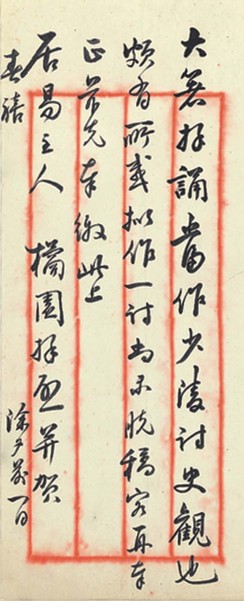 大著拜誦當作少陵詩史觀也
頗有所感擬作一討尚未脫稿容再奉
正茲先奉繳此上
居易主人 橘園拜并賀
春禧
除夕前一日